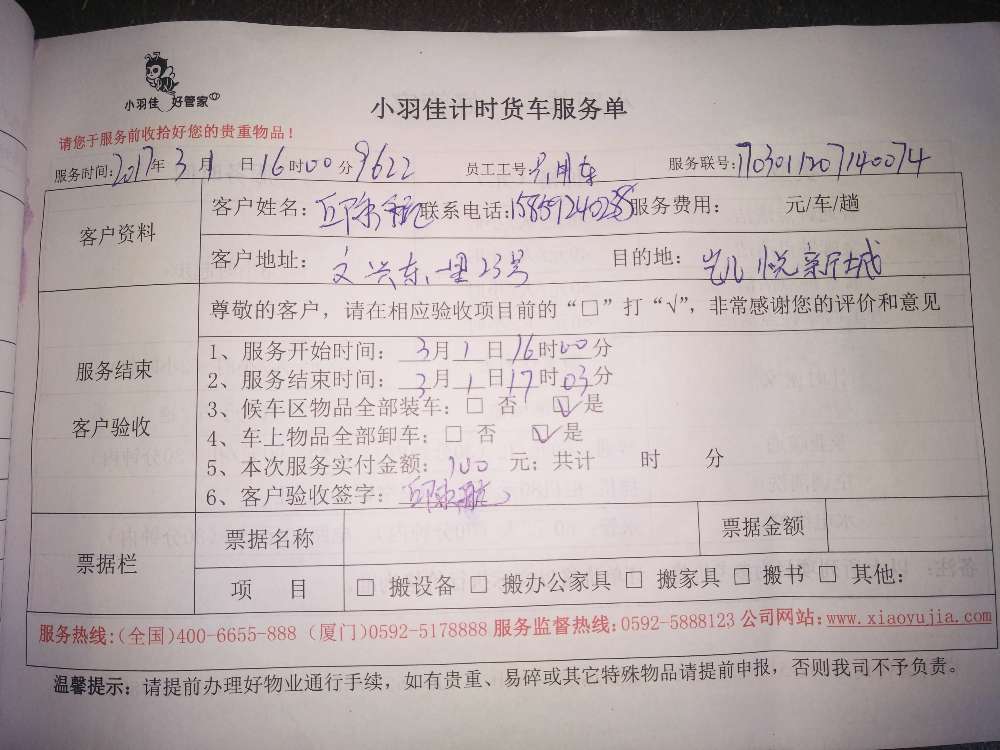 小羽佳 好管家
小羽佳计时货车服务单
请您于服务前收拾好您的贵重物品!
服务时间:2017年3月1日16时00分9622 员工工号: 用车 服务联号:1703011207140074
客户资料
客户姓名:邱 联系电话: 服务费用: 元/车/趟
客户地址: 文兴东一里23号 目的地: 凯悦新城
尊敬的客户,请在相应验收项目前的“□”打“√”,非常感谢您的评价和意见
服务结束
客户验收
1、服务开始时间: 3月1日16时00分
2、服务结束时间: 3月1日17时03分
3、候车区物品全部装车:□ 否 ☑是
4、车上物品全部卸车:□ 否 ☑是
5、本次服务实付金额: 100 元; 共计 时 分
6、客户验收签字: 邱
票据栏
票据名称 票据金额
项 目 □ 搬设备 □ 搬办公家具 □ 搬家具 □ 搬书 □ 其他:
服务热线:(全国)400-6655-888 (厦门)0592-5178888 服务监督热线:0592-5888123 公司网站:www.xiaoyujia.com
温馨提示: 请提前办理好物业通行手续, 如有贵重、易碎或其它特殊物品请提前申报, 否则我司不予负责。